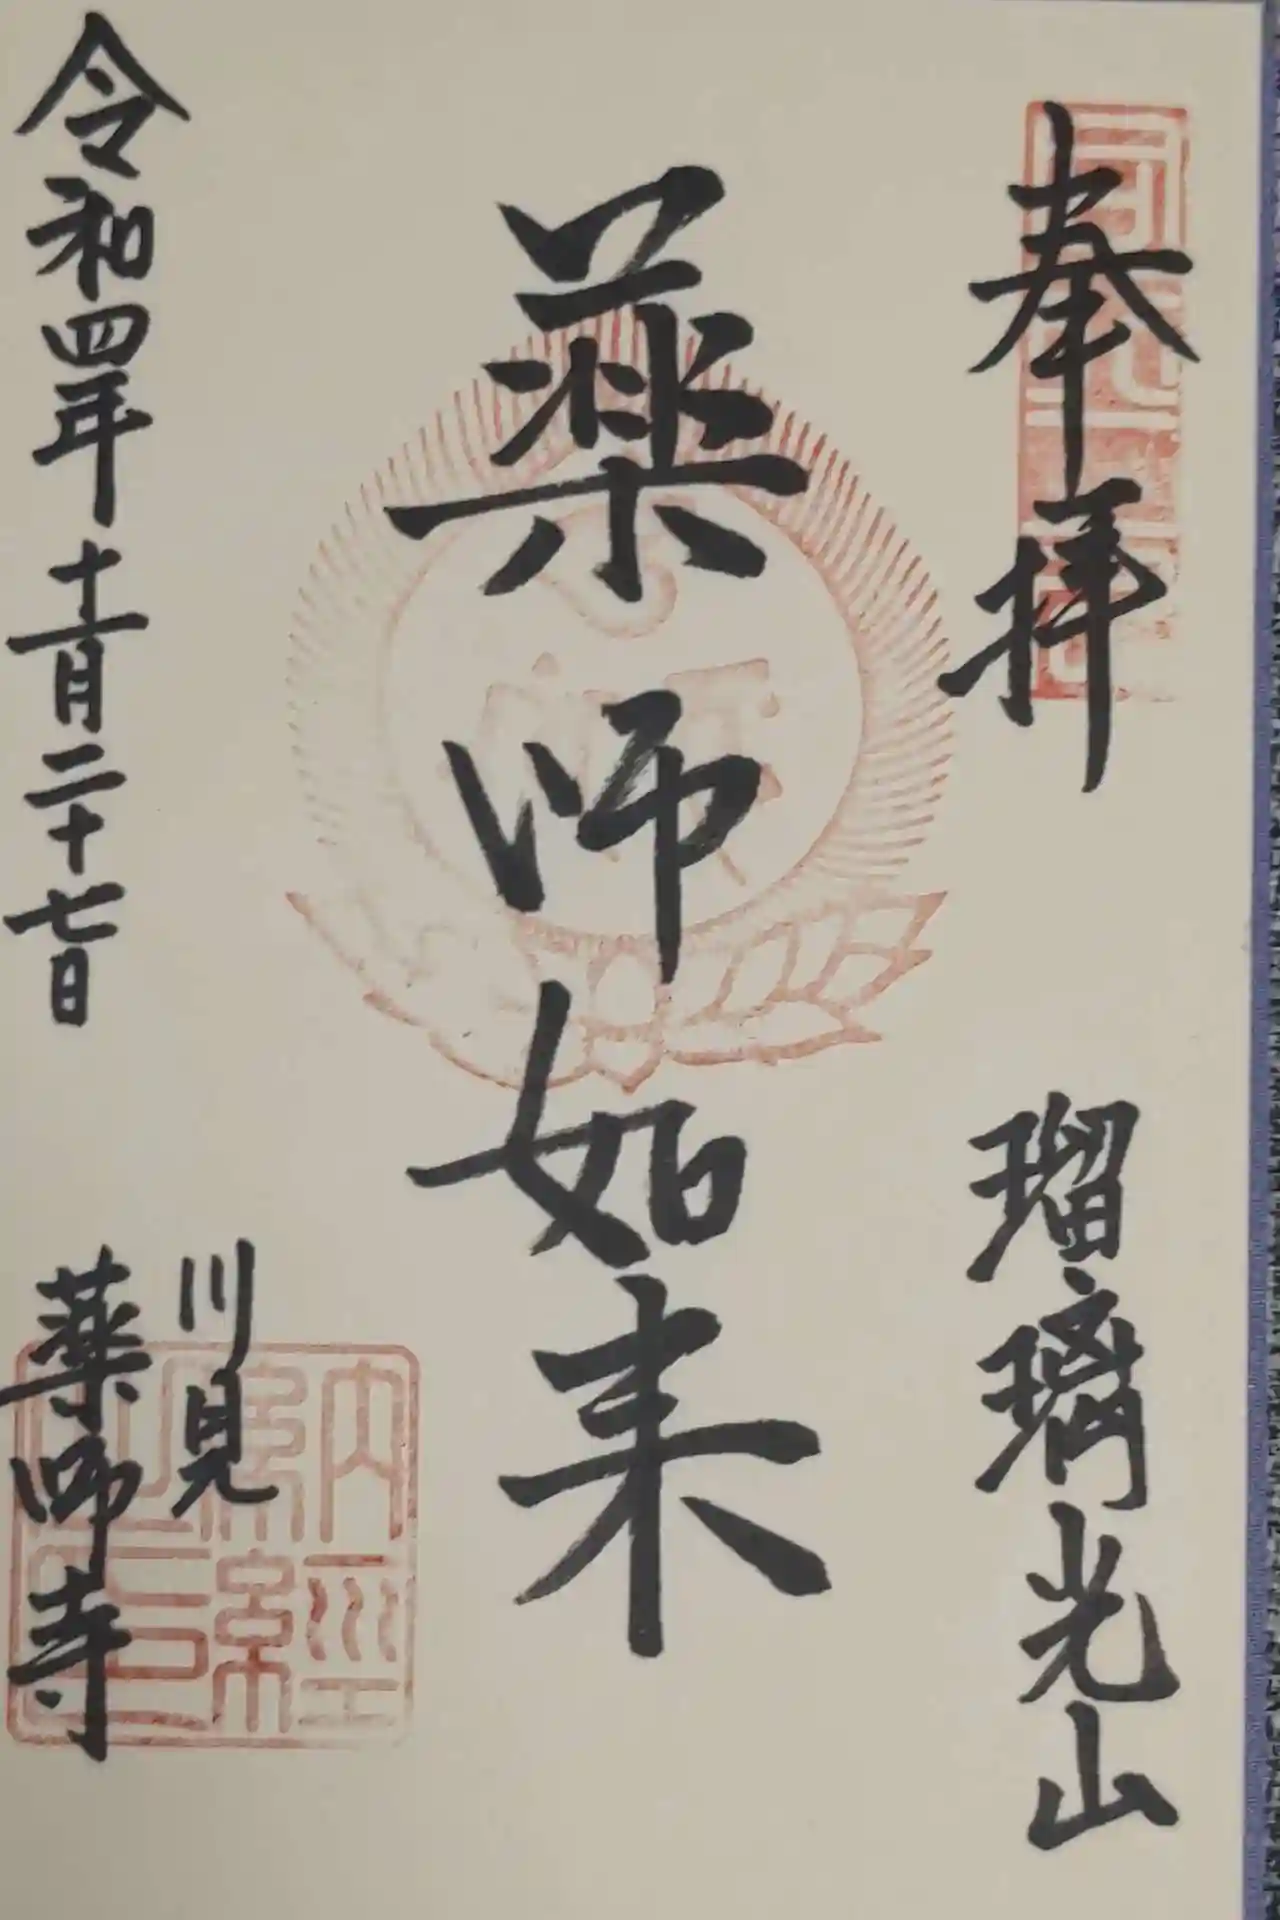 奉拝
瑠璃光山
薬師如来
令和四年十一月二十七日
川見
薬師寺
納経